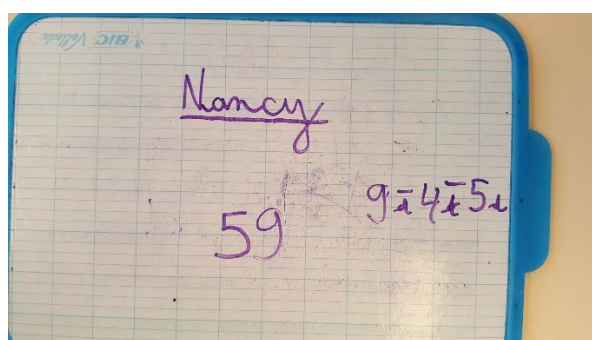 BIC Velleda
Nancy
9 - 4 - 5
59